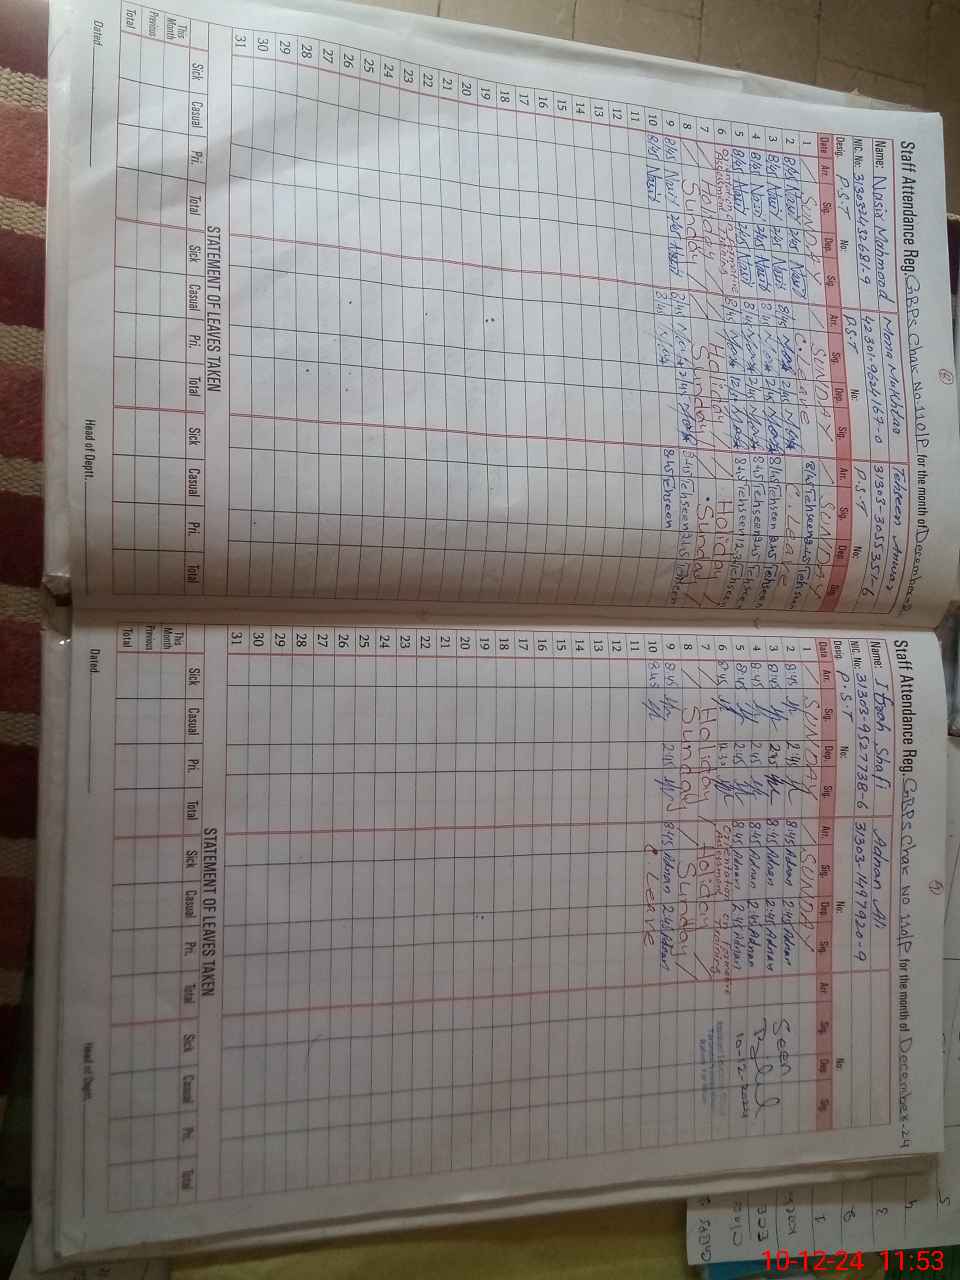 Staff Attendance Reg. GPPS Chak No. 110/P for the month of December-24
Name: Nasir Mahmood Mona Mukhtar Tehseen Anwar
NIC. No: 31303-2452681-9 42301-9624167-0 31303-3055351-6
Desig. P.S.T No: P.S.T No: P.S.T No:
Date Arr. Sig. Dep. Sig. Arr. Sig. Dep. Sig. Arr. Sig. Dep. Sig.
1 / SUNDAY / SUNDAY / SUNDAY /
2 8/45 Nasir 2/45 Nasir C. Leave 8/45 Tehseen 2:45 Tehseen
3 8/45 Nasir 2/45 Nasir 8/45 Mona 2/45 Mona C. Leave
4 8/45 Nasir 2/45 Nasir 8/45 Mona 2/45 Mona 8:45 Tehseen 2:45 Tehseen
5 8/45 Nasir 2/45 Nasir 8/45 Mona 2/45 Mona 8:45 Tehseen 2:45 Tehseen
6 Orientation on Formative Assessment Training 8/45 Mona 12/45 Mona 8:45 Tehseen Tehseen
7 / Holiday / Holiday / Holiday /
8 / Sunday / Sunday / Sunday /
9 8/45 Nasir 2/45 Nasir 8/45 Mona 2/45 Mona 8:45 Tehseen 2:45 Tehseen
10 8/45 Nasir 8/45 Mona 8:45 Tehseen
11
12
13
14
15
16
17
18
19
20
21
22
23
24
25
26
27
28
29
30
31
STATEMENT OF LEAVES TAKEN
Sick Casual Pri. Total Sick Casual Pri. Total Sick Casual Pri. Total
This Month
Previous
Total
Dated Head of Deptt.
Staff Attendance Reg. GPPS Chak No 110/P for the month of December-24
Name: Shafi Adnan Ali
NIC. No: 31303-9527738-6 31303-1497920-9
Desig. P.S.T No: No: No:
Date Arr. Sig. Dep. Sig. Arr. Sig. Dep. Sig. Arr. Sig. Dep. Sig.
1 / SUNDAY / SUNDAY
2 8:45 2:45 8:45 Adnan 2:45 Adnan
3 8:45 2:45 8:45 Adnan 2:45 Adnan
4 8:45 2:45 8:45 Adnan 2:45 Adnan
5 8:45 2:45 8:45 Adnan 2:45 Adnan
6 8:45 12:30 Orientation on Formative Assessment Training
7 / Holiday / Holiday
8 / Sunday / Sunday /
9 8:45 2:45 8:45 Adnan 2:45 Adnan
10 8:45 C. Leave
Seen
10-12-2024
11
12
13
14
15
16
17
18
19
20
21
22
23
24
25
26
27
28
29
30
31
STATEMENT OF LEAVES TAKEN
Sick Casual Pri. Total Sick Casual Pri. Total Sick Casual Pri. Total
This Month
Previous
Total
Dated Head of Deptt.
10-12-24 11:53